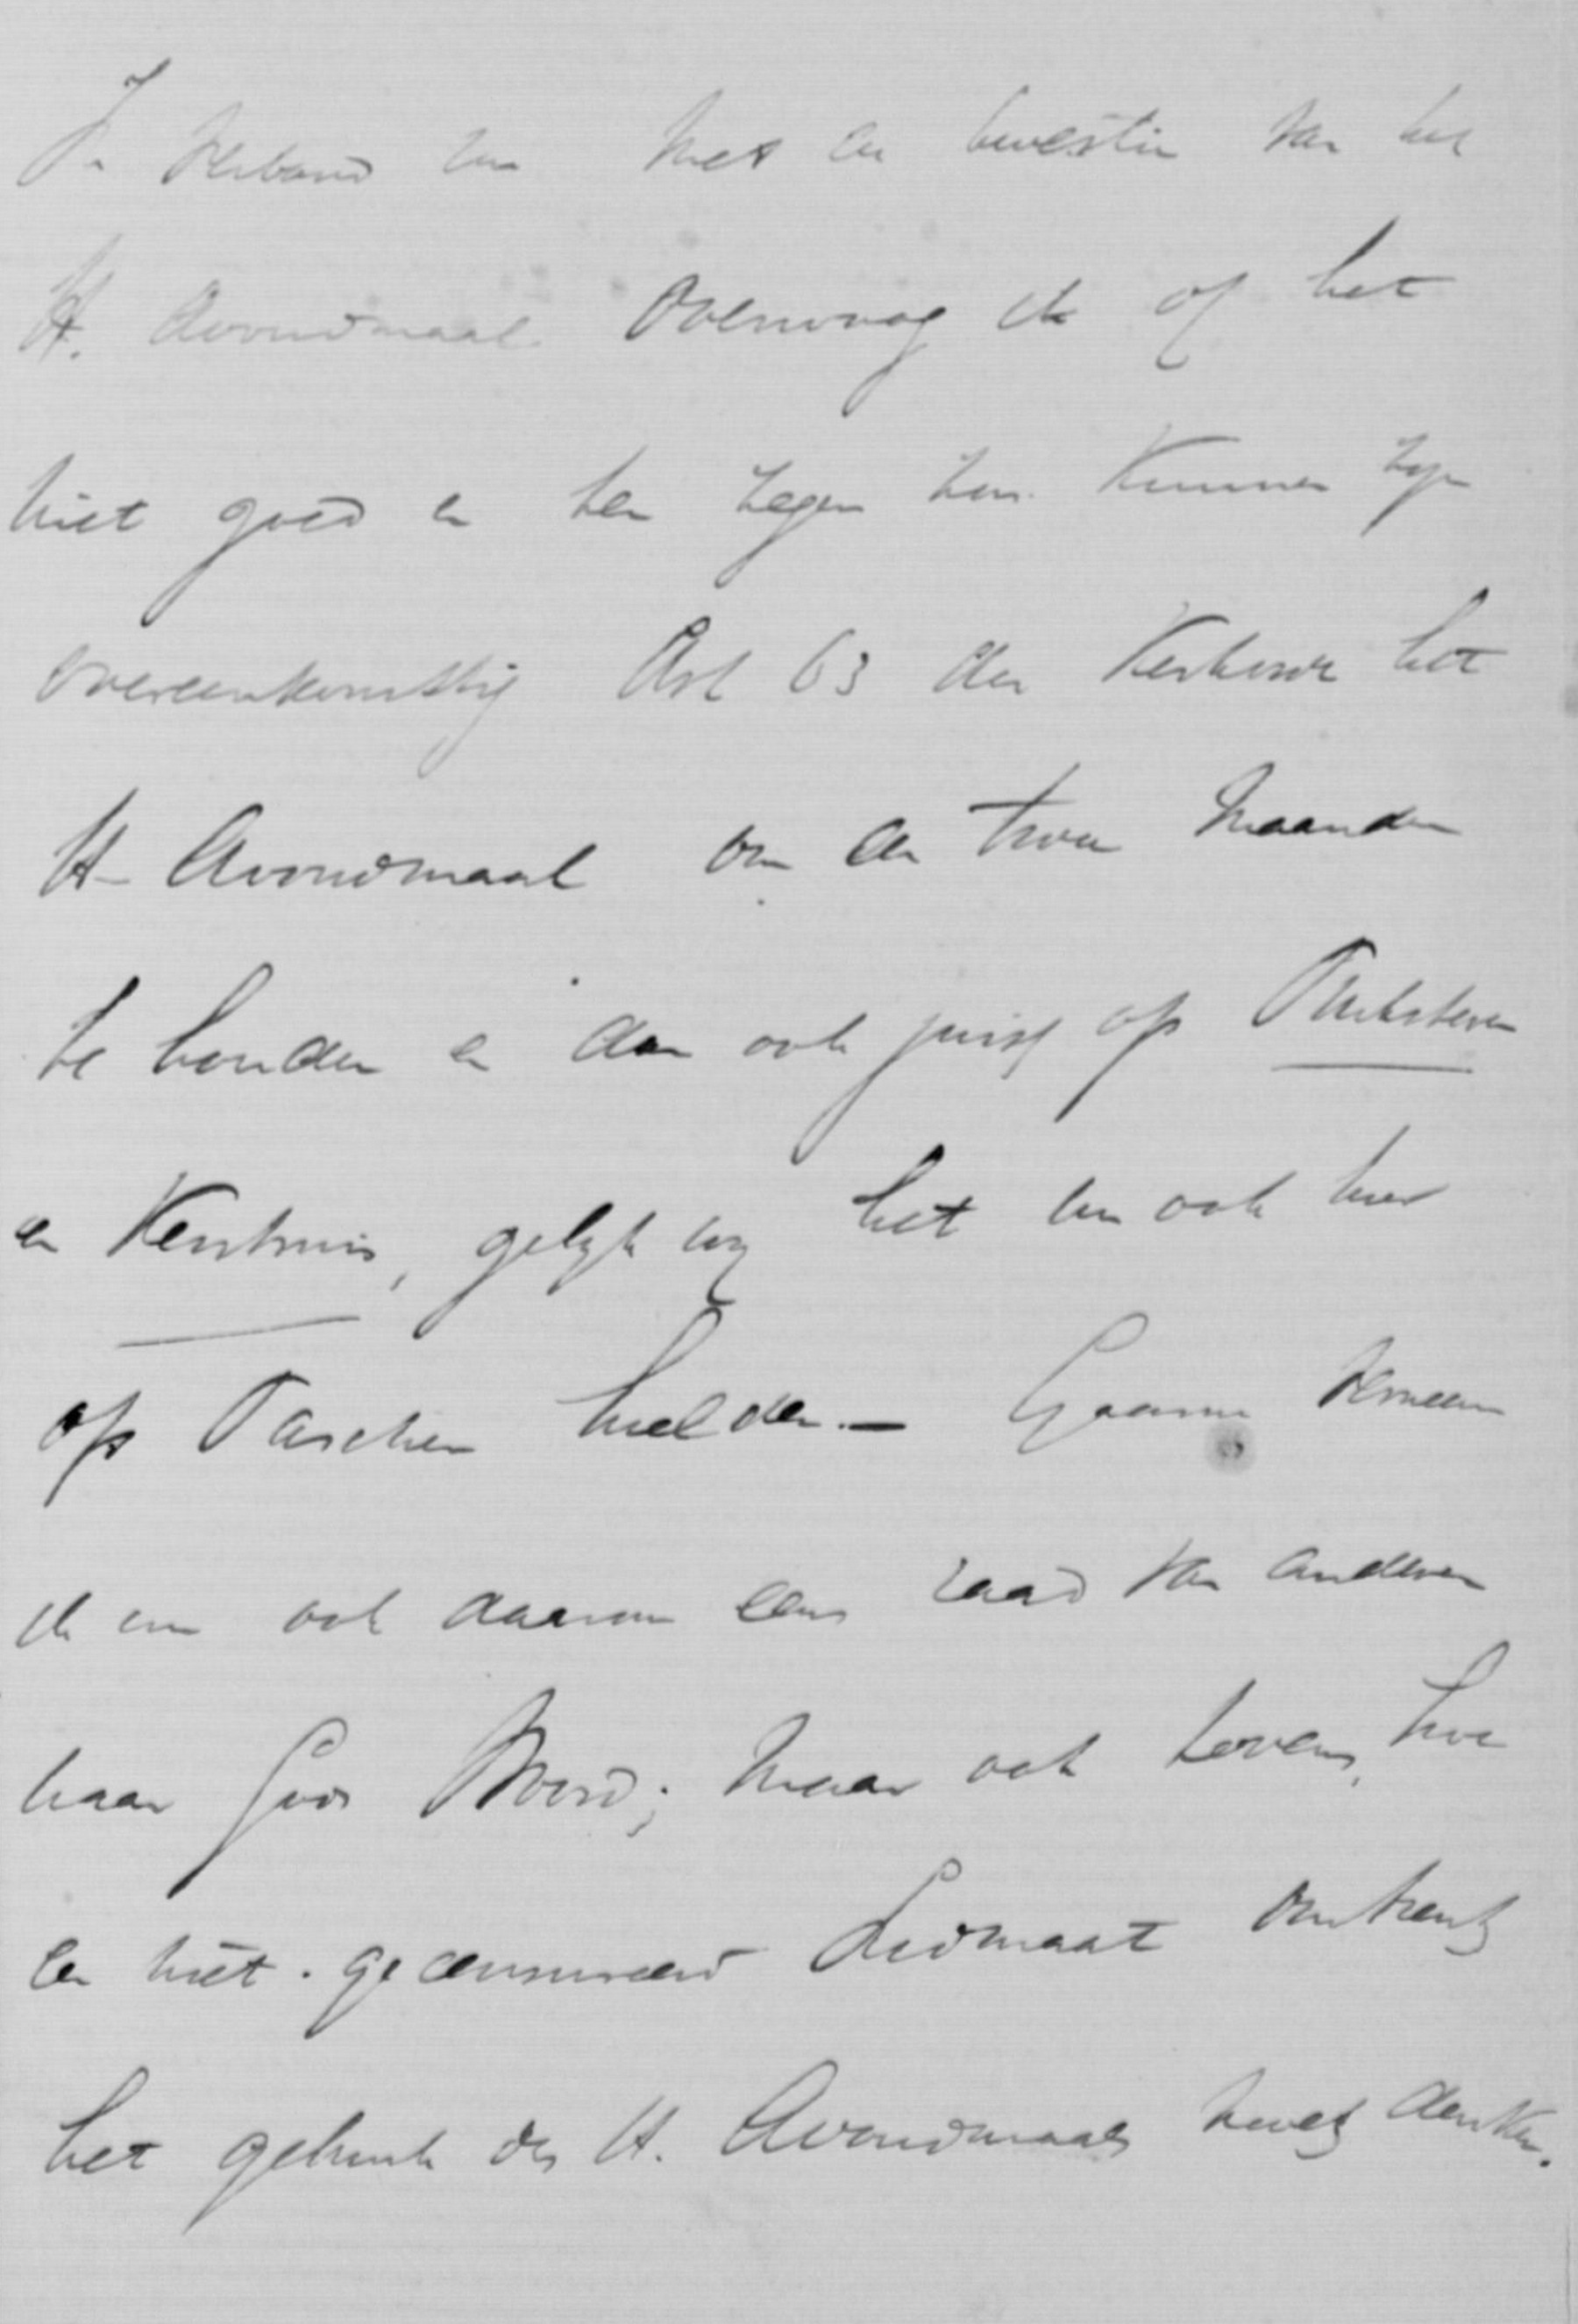 In verband nu met de kwestie van het
H. Avondmaal overwoog ik of het
niet goed en ten zegen zou kunnen zijn
overeenkomstig Art 63 der Kerkenor. het
H. Avondmaal om de twee maanden
te houden en dan ook juist op Pinksteren
en Kerstmis, gelijk wij het nu ook hier
op Paschen hielden. — Gaarne vernam
ik nu ook daarom eens raad van anderen
naar Gods Woord; maar ook tevens, hoe
een niet. gecensureerd Lidmaat omtrent
het gebruik des H. Avondmaals moet denken.